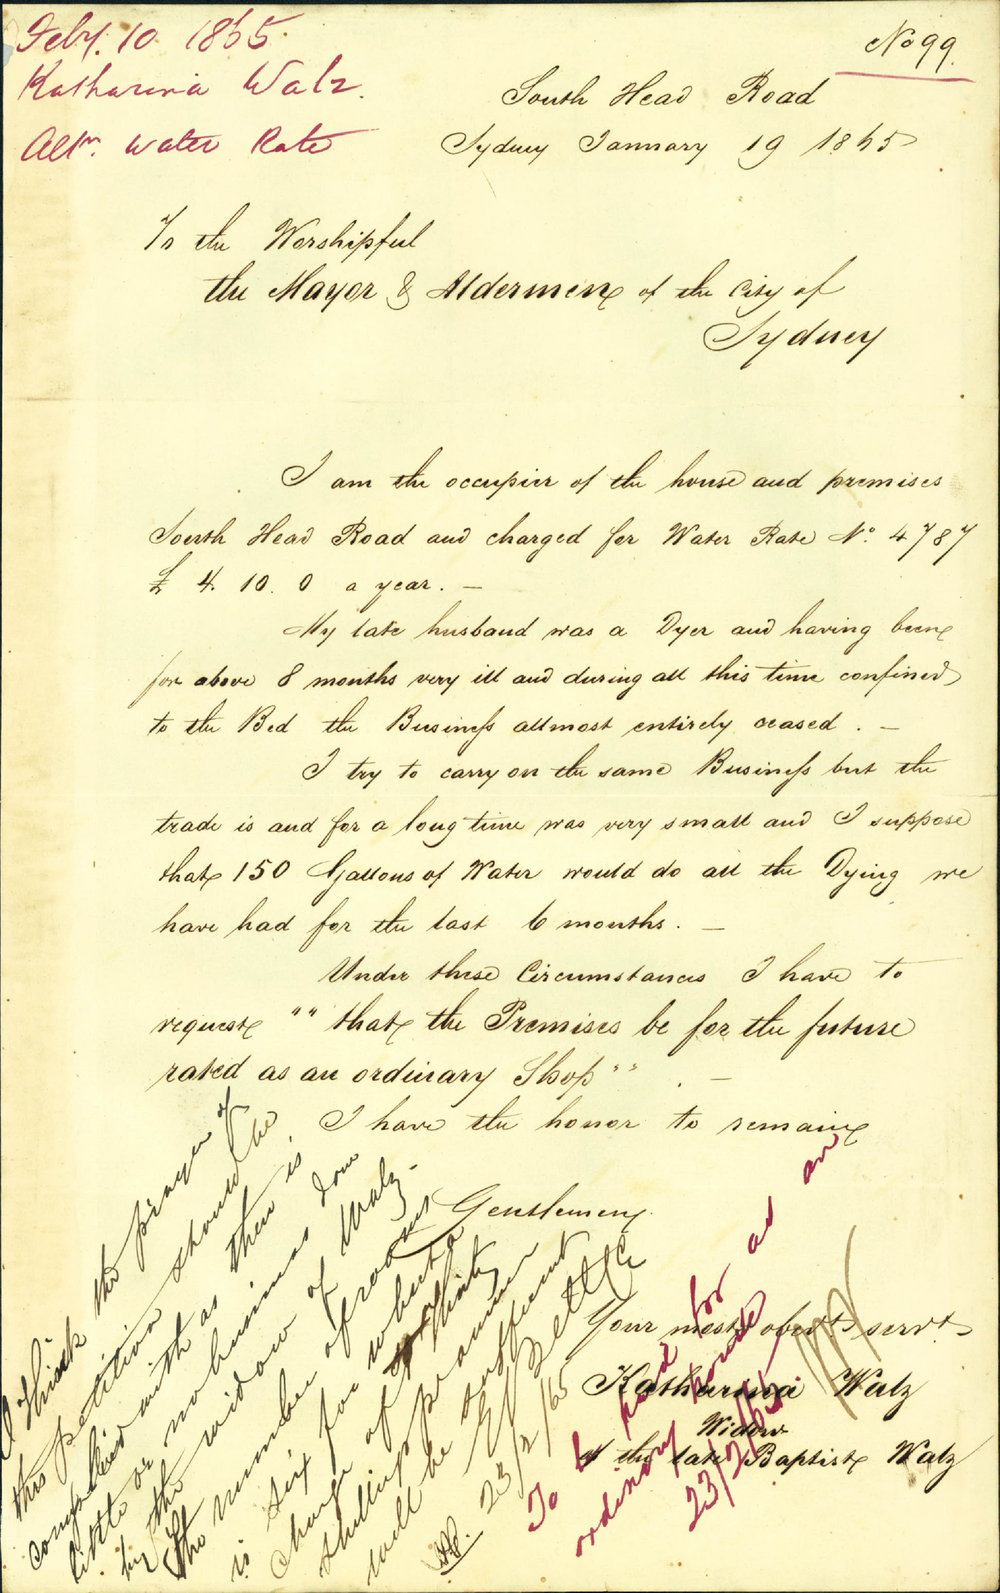 Feby. 10 1865.
Katharina Walz.
Altn. Water Rate
No 99.
South Head Road
Sydney January 19 1865
To the Worshipful
the Mayor & Aldermen of the City of
Sydney
I am the occupier of the house and premises
South Head Road and charged for Water Rate No. 4787
£ 4. 10. 0 a year. —
My late husband was a Dyer and having been
for above 8 months very ill and during all this time confined
to the Bed the Business allmost entirely ceased. —
I try to carry on the same Business but the
trade is and for a long time was very small and I suppose
that 150 Gallons of Water would do all the Dying we
have had for the last 6 months. —
Under these Circumstances I have to
request "" that the Premises be for the future
rated as an ordinary Shop "" . —
I have the honor to remain
Gentlemen
Your most obedt servt
Katharina Walz
Widow
of the late Baptist Walz
I think the prayer of
this petition should be
complied with as there is
little or no business done
by the widow of Walz.
The number of rooms
is six for which a
charge of thirty
shillings per annum
will be sufficient
23/2/65
To be rated for as an
ordinary house
23/2/65